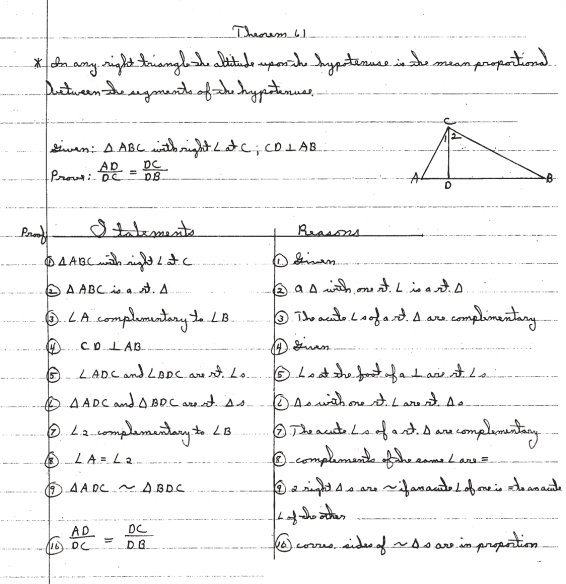 Theorem 61
* In any right triangle the altitude upon the hypotenuse is the mean proportional
between the segments of the hypotenuse.
Given: △ABC with right ∠ at C ; CD ⊥ AB
Prove: AD/DC = DC/DB
C
1 2
A D B
Proof Statements Reasons
① △ABC with right ∠ at C ① Given
② △ABC is a rt. △ ② a △ with one rt. ∠ is a rt. △
③ ∠A complementary to ∠B ③ The acute ∠s of a rt. △ are complimentary
④ CD ⊥ AB ④ Given
⑤ ∠ADC and ∠BDC are rt. ∠s. ⑤ ∠s at the foot of a ⊥ are rt. ∠s
⑥ △ADC and △BDC are rt. △s ⑥ △s with one rt. ∠ are rt. △s
⑦ ∠2 complementary to ∠B ⑦ The acute ∠s of a rt. △ are complementary
⑧ ∠A = ∠2 ⑧ complements of the same ∠ are =
⑨ △ADC ~ △BDC ⑨ 2 right △s are ~ if an acute ∠ of one is = to an acute
∠ of the other
⑩ AD/DC = DC/DB ⑩ corres. sides of ~ △s are in proportion